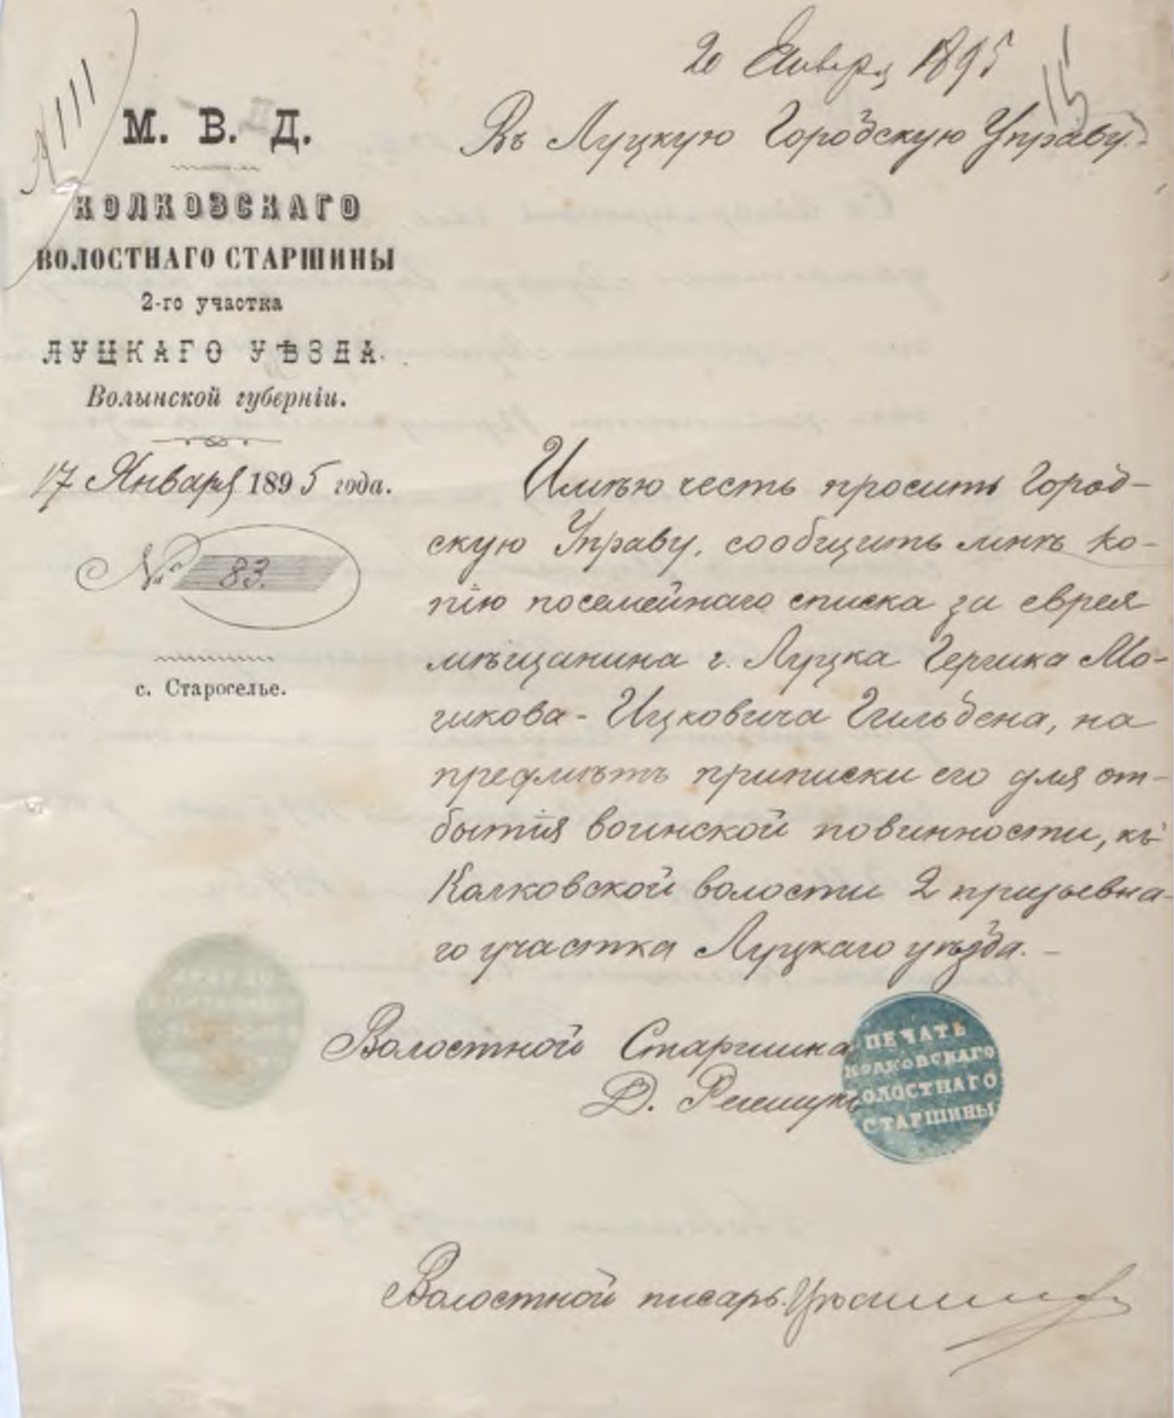 № 111
М. В. Д.
КОЛКОВСКАГО
ВОЛОСТНАГО СТАРШИНЫ
2-го участка
ЛУЦКАГО УѢЗДА.
Волынской губерніи.
17 Января 1895 года.
№ 83.
с. Староселье.
20 Января 1895
Въ Луцкую Городскую Управу.
Имѣю честь просить Город-
скую Управу, сообщить мнѣ ко-
пію посемейнаго списка за еврея
мѣщанина г. Луцка Гершка Мо-
шкова-Ицковича Гильбена, на
предметъ приписки его для от-
бытія воинской повинности, къ
Колковской волости 2 призывна-
го участка Луцкаго уѣзда.-
Волостной Старшина
Д.
ПЕЧАТЬ
КОЛКОВСКАГО
ВОЛОСТНАГО
СТАРШИНЫ
Волостной писарь